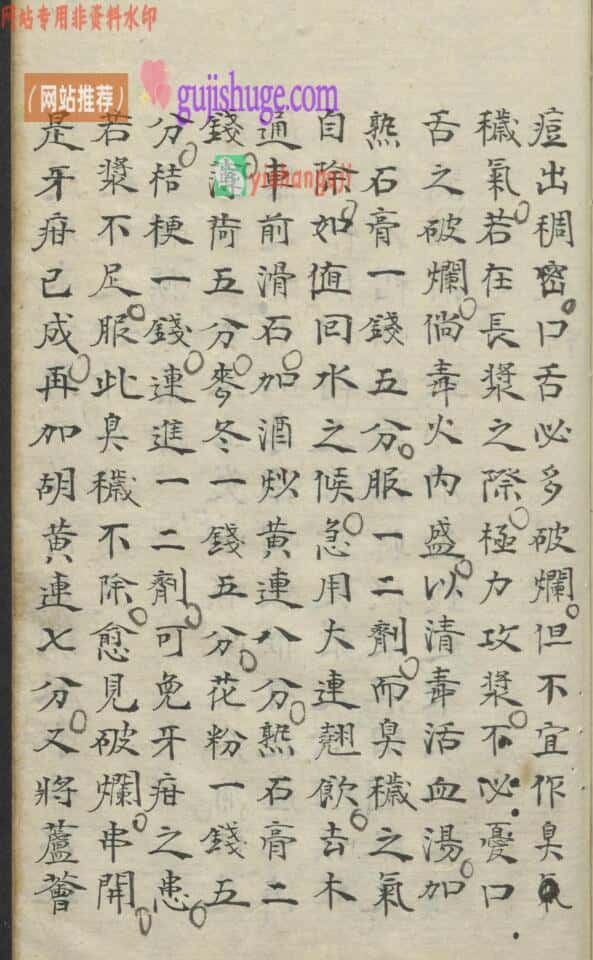 网站专用非资料水印
(网站推荐)
gujishuge.com
痘出稠密口舌必多破爛但不宜作臭氣
穢氣若在長漿之際極力攻漿不必憂口
舌之破爛倘毒火內盛以清毒活血湯加
熟石膏一錢五分服一二劑而臭穢之氣
自除如值回水之候急用大連翹飲去木
通車前滑石加酒炒黃連八分熟石膏二
錢薄荷五分麥冬一錢五分花粉一錢五
分桔梗一錢連進一二劑可免牙疳之患
若漿不足服此臭穢不除愈見破爛串開
是牙疳已成再加胡黃連七分又將蘆薈